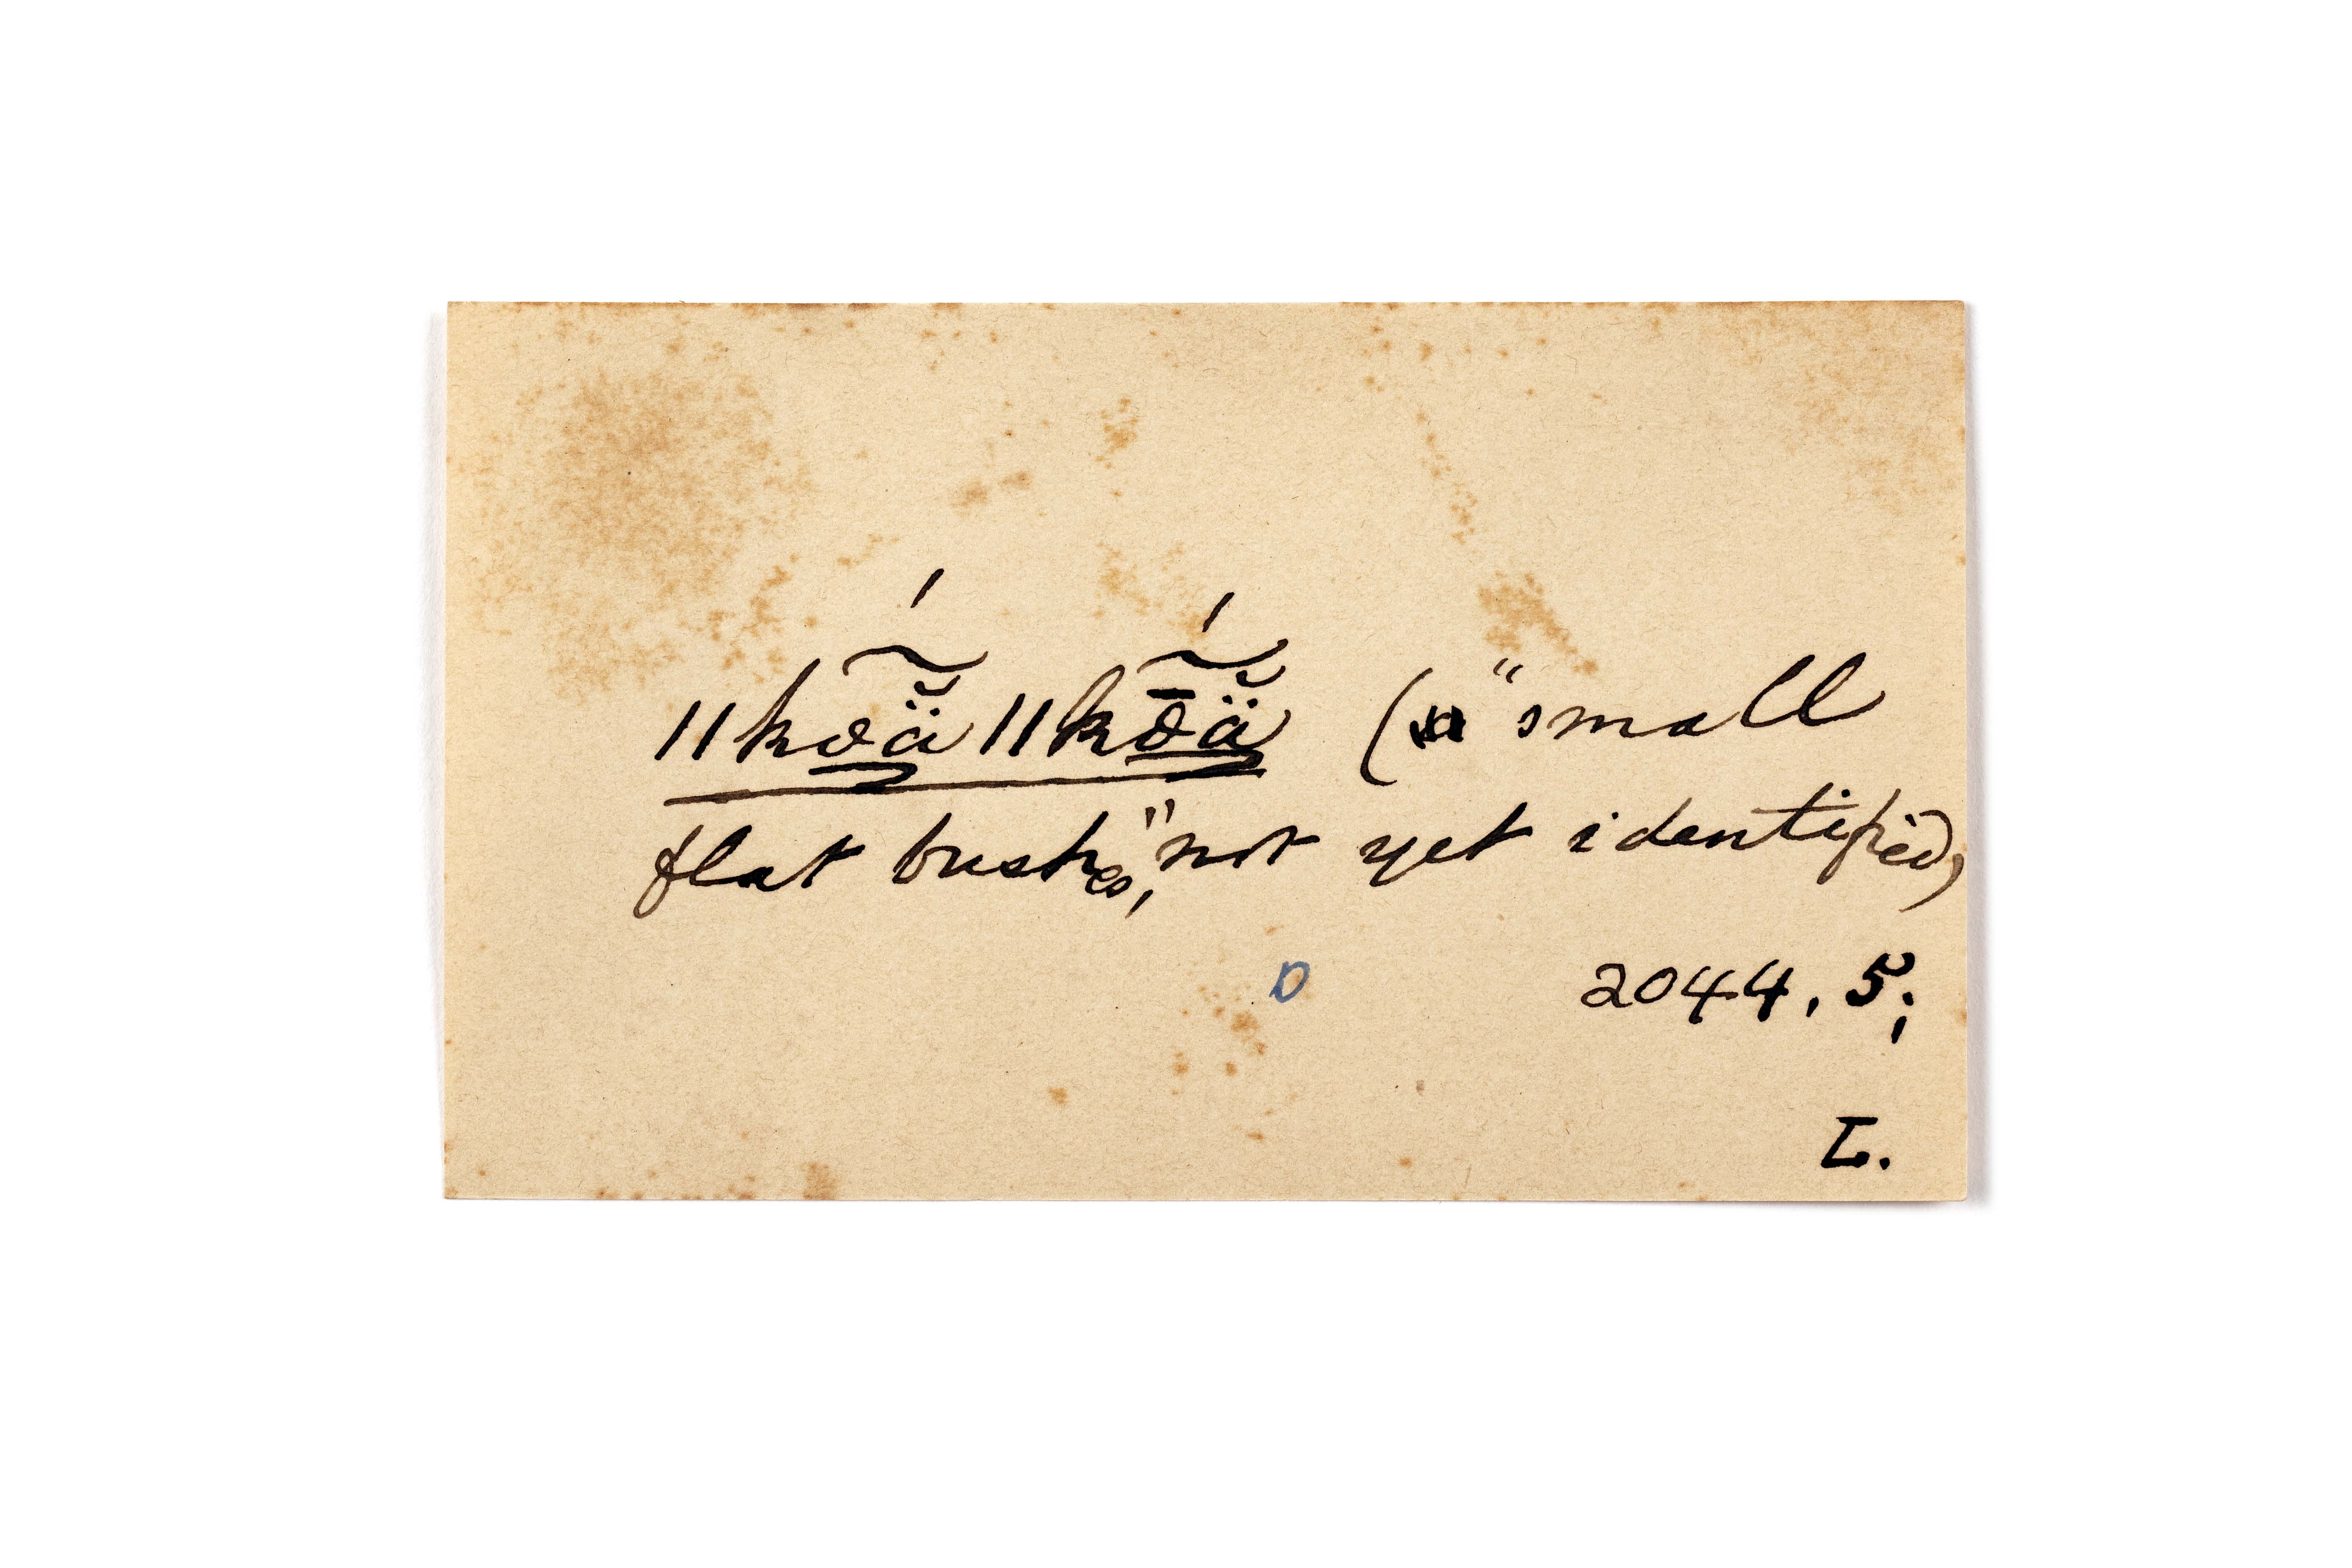 ǁkoä ǁkōä ("small
flat bushes," not yet identified)
D 2044, 5;
L.